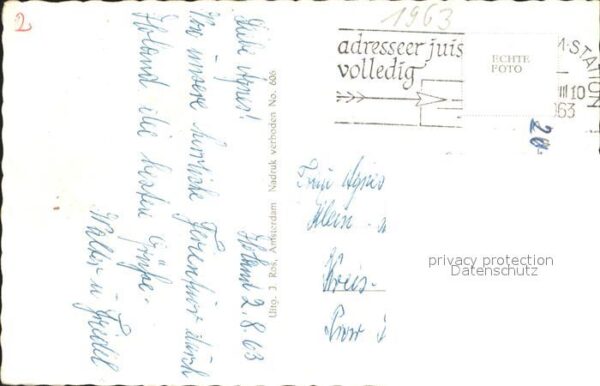 2
1963
adresseer juis
volledig
ECHTE
FOTO
M-STATION
VIII 10
963
20.
Holland 2.8.63
Liebe Agnes!
Von unsere herrliche Ferientour durch
Holland die besten Grüße.
Walter u. Friedel
Uitg. J. Ros, Amsterdam Nadruk verboden No. 606
Frau Agnes
Klein
Kreis
privacy protection
Datenschutz